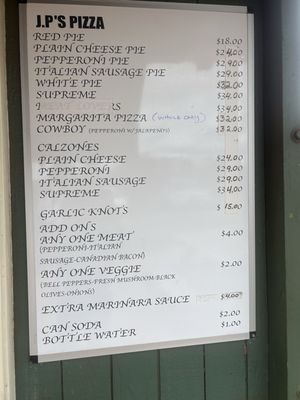 J.P'S PIZZA
RED PIE $18.00
PLAIN CHEESE PIE $24.00
PEPPERONI PIE $29.00
ITALIAN SAUSAGE PIE $29.00
WHITE PIE $32.00
SUPREME $34.00
MEAT LOVERS $34.00
MARGARITA PIZZA (WHOLE ONLY) $32.00
COWBOY (PEPPERONI W/ JALAPENOS) $32.00
CALZONES
PLAIN CHEESE $24.00
PEPPERONI $29.00
ITALIAN SAUSAGE $29.00
SUPREME $34.00
GARLIC KNOTS $ 15.00
ADD ONS
ANY ONE MEAT $4.00
(PEPPERONI-ITALIAN
SAUSAGE-CANADIAN BACON)
ANY ONE VEGGIE $2.00
(BELL PEPPERS-FRESH MUSHROOM-BLACK
OLIVES-ONIONS)
EXTRA MARINARA SAUCE $4.00
CAN SODA $2.00
BOTTLE WATER $1.00